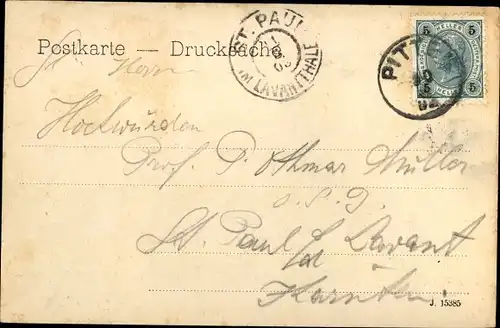 Postkarte — Drucksache
ST. PAUL
IM LAVANTTHAL
5 HELLER 5
5 HELLER 5
PITTEN
Sr Herrn
Hochwürden
Prof. P. Othmar Müller
O. S. B.
St. Paul i/ Lavant
tal
Kärnten
J. 15385